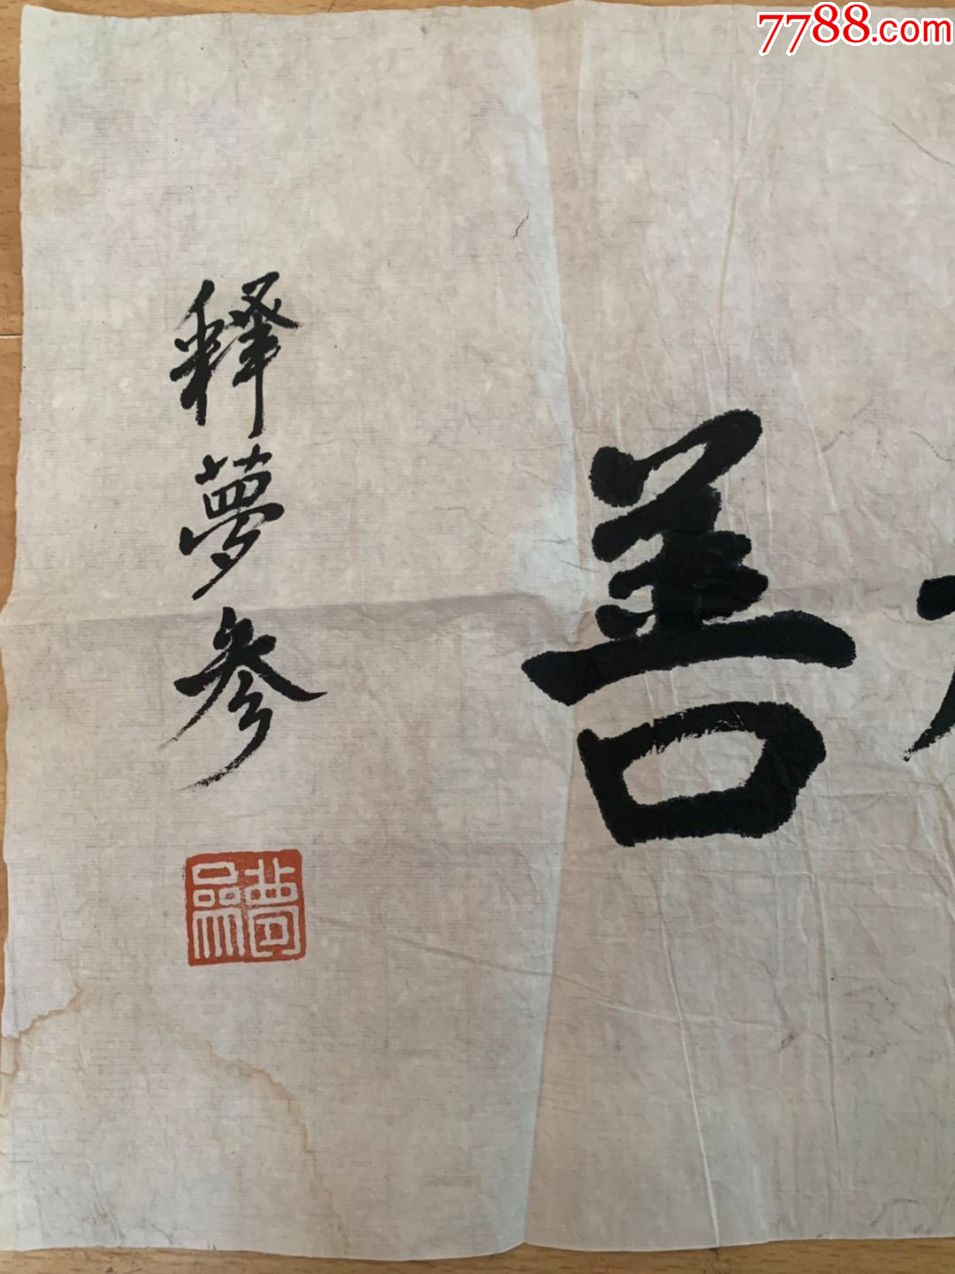 7788.com
善
释夢参